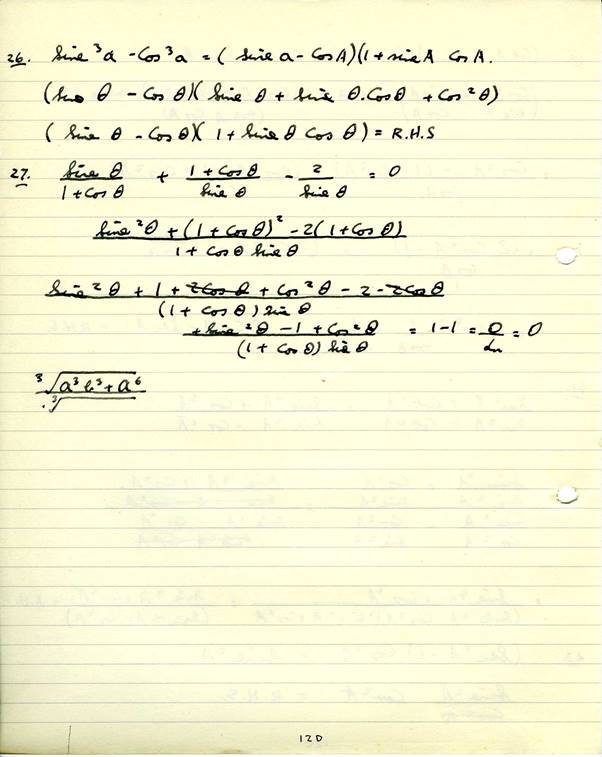 26. Sine³a - Cos³a = (sine a - CosA)(1+sineA CosA.
(Sine θ - Cos θ)(Sine θ + Sine θ.Cosθ + Cos²θ)
(Sine θ - Cosθ)(1 + Sine θ Cos θ) = R.H.S
27. Sine θ / 1+Cos θ + 1+Cosθ / Sine θ - 2 / Sine θ = 0
Sine²θ + (1+Cosθ)² - 2(1+Cosθ) / 1+Cosθ Sine θ
Sine²θ + 1 + 2Cosθ + Cos²θ - 2 - 2Cosθ / (1+Cosθ) Sine θ
+Sine²θ - 1 + Cos²θ / (1+Cosθ) Sine θ = 1-1 = 0 / = 0
³√a³b³+a⁶ / ³√
120